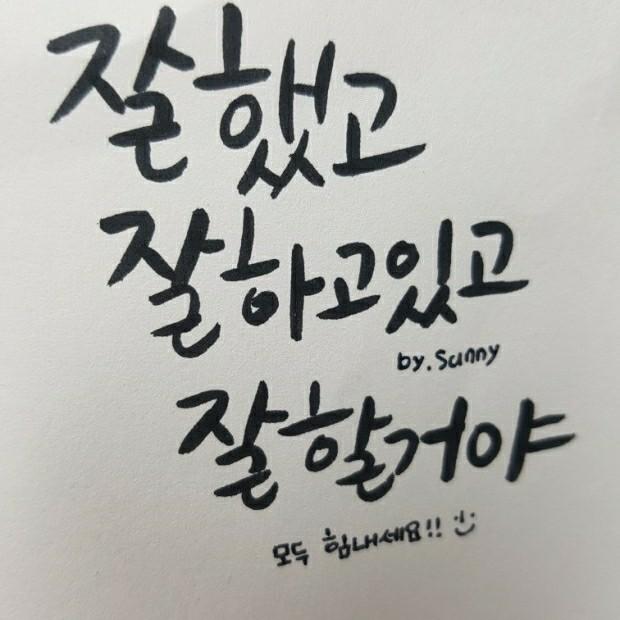 잘했고
잘하고있고
by. Sunny
잘할거야
모두 힘내세요!! :)